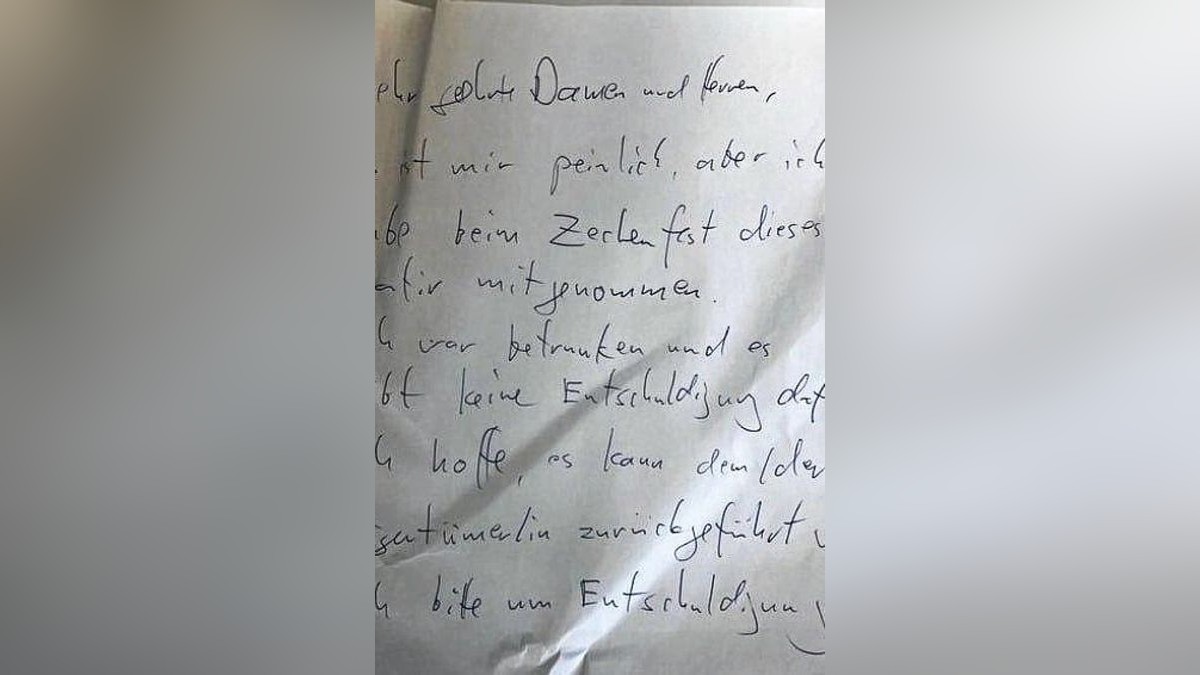 ehr geehrte Damen und Herren,
ist mir peinlich, aber ich
abe beim Zechenfest dieses
afir mitgenommen.
h war betrunken und es
ibt keine Entschuldigung daf
h hoffe, es kann dem/der
igentümer/in zurückgeführt w
h bitte um Entschuldigung